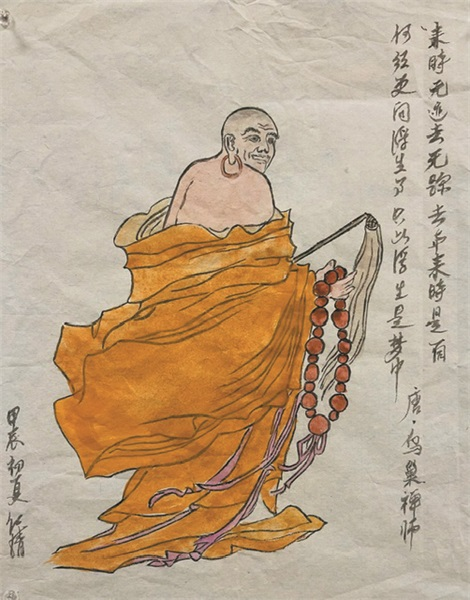 来時无迹去无踪去与来時是一同
何须更问浮生事只此浮生是梦中
唐·鸟巢禅师
甲辰初夏